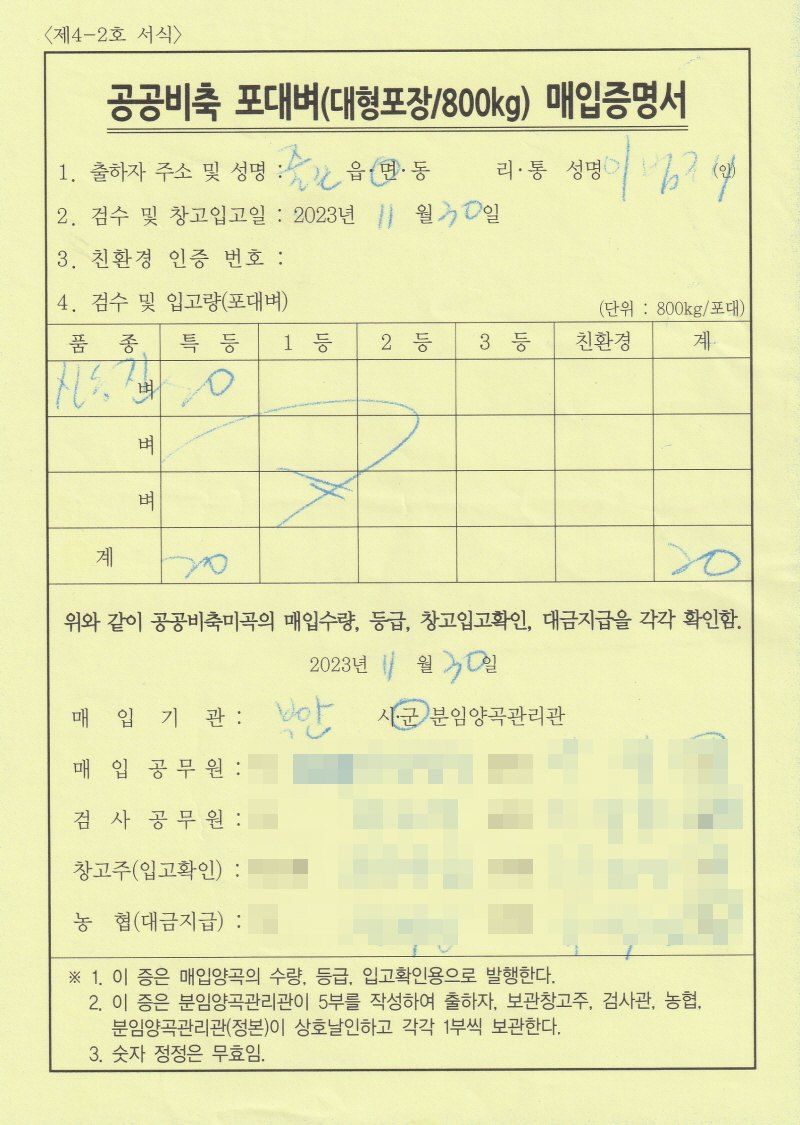 〈제4-2호 서식〉
공공비축 포대벼(대형포장/800kg) 매입증명서
1. 출하자 주소 및 성명 : 줄포 읍·면·동 리·통 성명 이 (인)
2. 검수 및 창고입고일 : 2023년 11 월 30일
3. 친환경 인증 번호 :
4. 검수 및 입고량(포대벼)
(단위 : 800kg/포대)
품 종 특 등 1 등 2 등 3 등 친환경 계
신동진 벼 20
벼
벼
계 20 20
위와 같이 공공비축미곡의 매입수량, 등급, 창고입고확인, 대금지급을 각각 확인함.
2023년 11 월 30일
매 입 기 관 : 부안 시·군 분임양곡관리관
매 입 공 무 원 :
검 사 공 무 원 :
창고주(입고확인) :
농 협(대금지급) :
※ 1. 이 증은 매입양곡의 수량, 등급, 입고확인용으로 발행한다.
2. 이 증은 분임양곡관리관이 5부를 작성하여 출하자, 보관창고주, 검사관, 농협,
분임양곡관리관(정본)이 상호날인하고 각각 1부씩 보관한다.
3. 숫자 정정은 무효임.